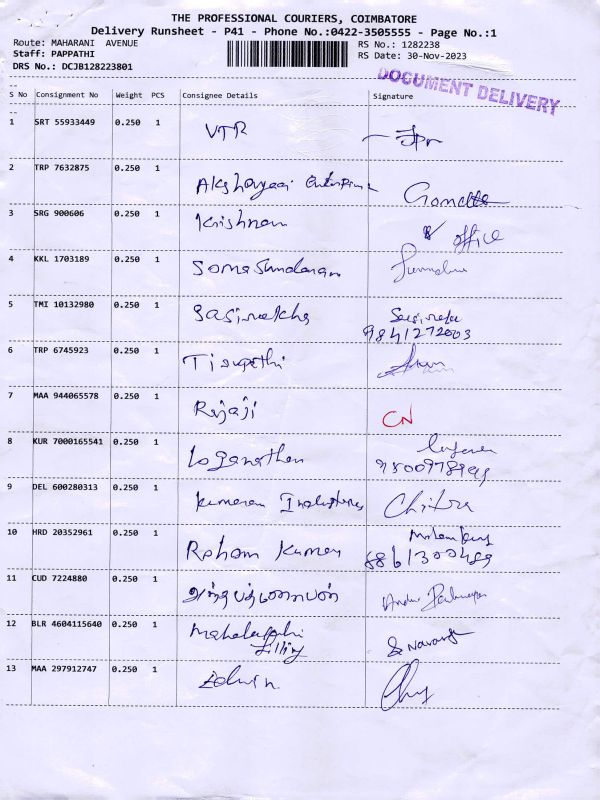 THE PROFESSIONAL COURIERS, COIMBATORE
Delivery Runsheet - P41 - Phone No.:0422-3505555 - Page No.:1
Route: MAHARANI AVENUE
Staff: PAPPATHI
DRS No.: DCJB128223801
RS No.: 1282238
RS Date: 30-Nov-2023
DOCUMENT DELIVERY
S No Consignment No Weight PCS Consignee Details Signature
1 SRT 55933449 0.250 1 VTR
2 TRP 7632875 0.250 1 Akshayaa Enterprise
3 SRG 900606 0.250 1 Krishnan office
4 KKL 1703189 0.250 1 Somasundaram
5 TMI 10132980 0.250 1 Sasirekha Sasireka
9841272003
6 TRP 6745923 0.250 1 Tirupathi
7 MAA 944065578 0.250 1 Rajaji CN
8 KUR 7000165541 0.250 1 Loganathan
9 DEL 600280313 0.250 1 Kumaran Industries Chitra
10 HRD 20352961 0.250 1 Kumar
11 CUD 7224880 0.250 1
12 BLR 4604115640 0.250 1
13 MAA 297912747 0.250 1 Edwin